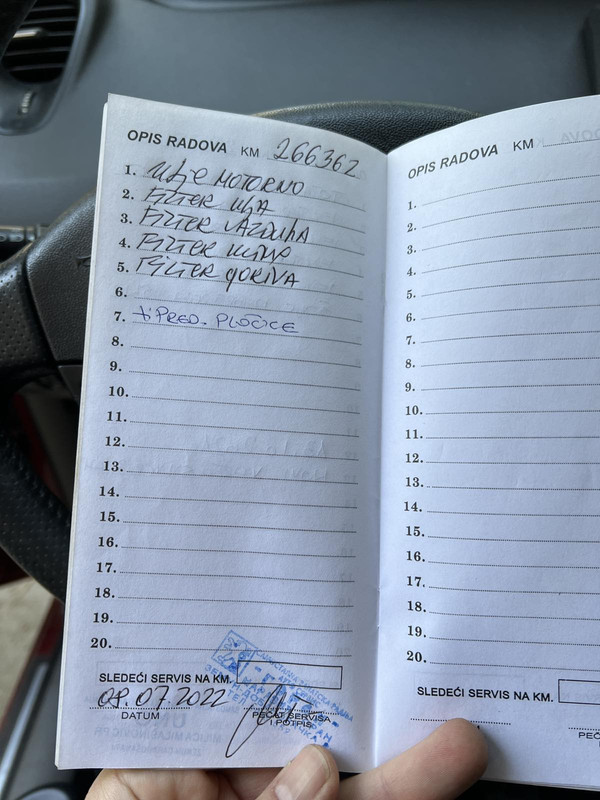 OPIS RADOVA KM 266362
1. ULJE MOTORNO
2. FILTER ULJA
3. FILTER VAZDUHA
4. FILTER KLIME
5. FILTER GORIVA
6.
7. + PRED. PLOČICE
8.
9.
10.
11.
12.
13.
14.
15.
16.
17.
18.
19.
20.
SLEDEĆI SERVIS NA KM.
08.07.2022
DATUM
PEČAT SERVISA
I POTPIS
OPIS RADOVA KM
1.
2.
3.
4.
5.
6.
7.
8.
9.
10.
11.
12.
13.
14.
15.
16.
17.
18.
19.
20.
SLEDEĆI SERVIS NA KM.
DATUM